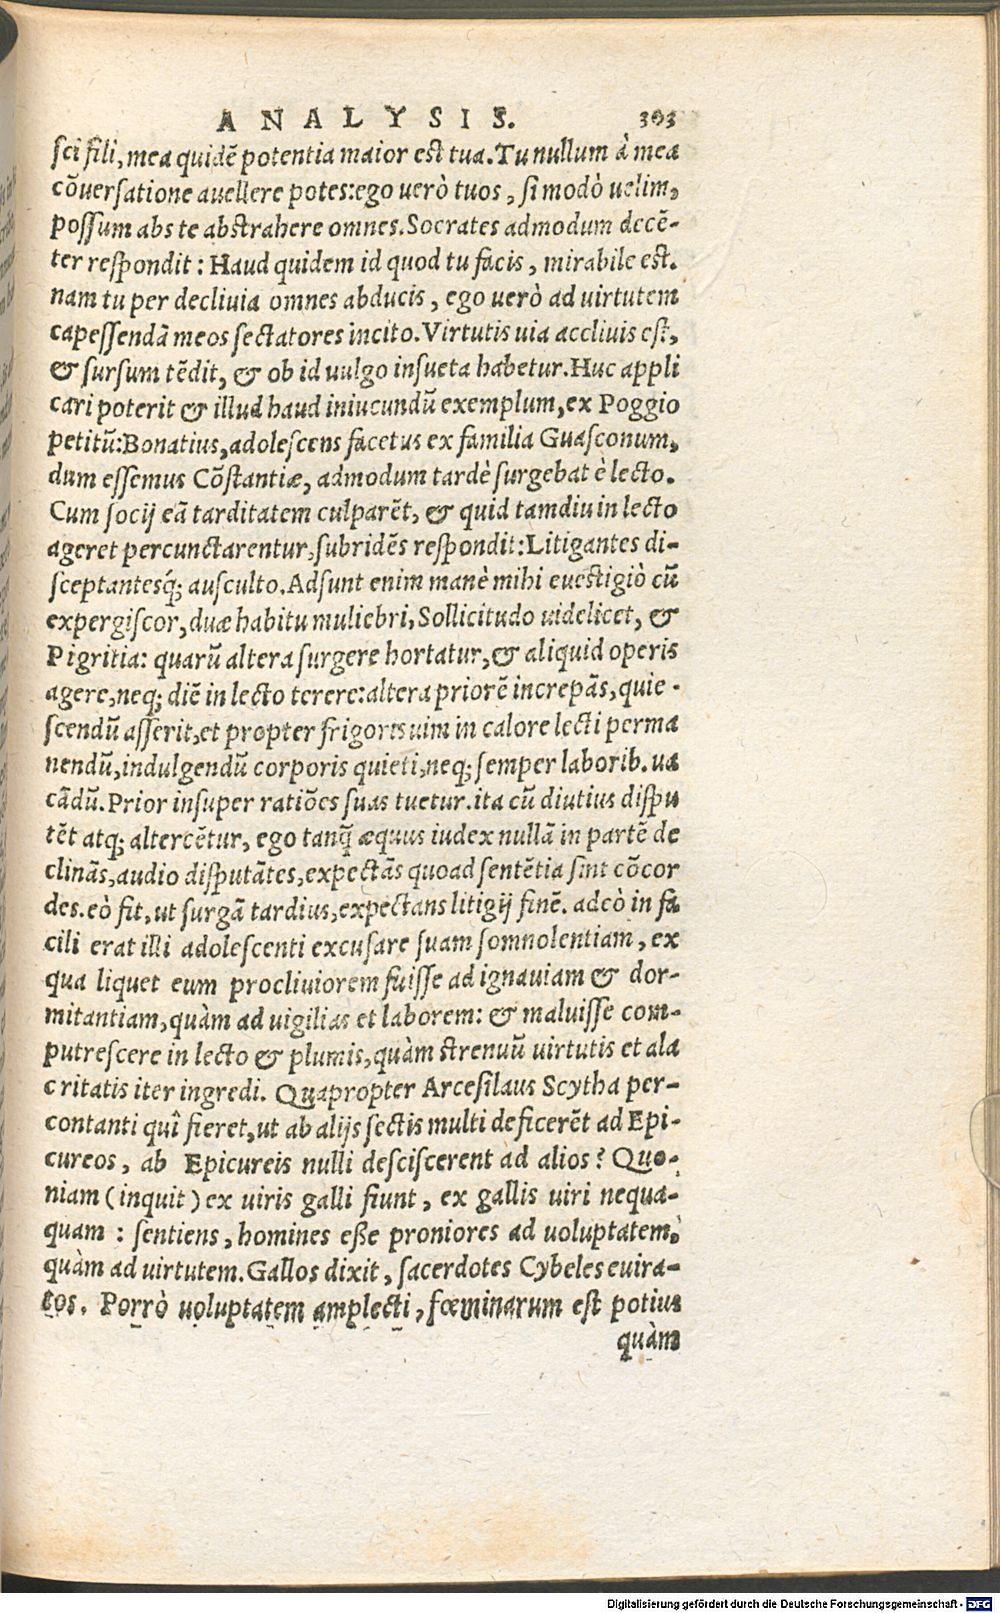 ANALYSIS. 303
sci fili, mea quidẽ potentia maior est tua. Tu nullum à mea
cõuersatione auellere potes: ego uerò tuos, si modò uelim,
possum abs te abstrahere omnes. Socrates admodum decẽ-
ter respondit: Haud quidem id quod tu facis, mirabile est.
nam tu per decliuia omnes abducis, ego uerò ad uirtutem
capessendã meos sectatores incito. Virtutis uia accliuis est,
& sursum tẽdit, & ob id uulgo insueta habetur. Huc appli
cari poterit & illud haud iniucundũ exemplum, ex Poggio
petitũ: Bonatius, adolescens facetus ex familia Guasconum,
dum essemus Cõstantiæ, admodum tardè surgebat è lecto.
Cum socij eã tarditatem culparẽt, & quid tamdiu in lecto
ageret percunctarentur, subridẽs respondit: Litigantes di-
sceptantesq́; ausculto. Adsunt enim manè mihi euestigiò cũ
expergiscor, duæ habitu muliebri, Sollicitudo uidelicet, &
Pigritia: quarũ altera surgere hortatur, & aliquid operis
agere, neq; diẽ in lecto terere: altera priorẽ increpãs, quie-
scendũ asserit, et propter frigoris uim in calore lecti perma
nendũ, indulgendũ corporis quieti, neq; semper laborib. ua
cãdũ. Prior insuper ratiões suas tuetur. ita cũ diutius dispu
tẽt atq; altercẽtur, ego tanq̃ æquus iudex nullã in partẽ de
clinãs, audio disputãtes, expectãs quoad sentẽtia sint cõcor
des. eò fit, ut surgã tardius, expectans litigij finẽ. adeò in fa
cili erat illi adolescenti excusare suam somnolentiam, ex
qua liquet eum procliuiorem fuisse ad ignauiam & dor-
mitantiam, quàm ad uigilias et laborem: & maluisse com-
putrescere in lecto & plumis, quàm strenuũ uirtutis et ala
critatis iter ingredi. Quapropter Arcesilaus Scytha per-
contanti quî fieret, ut ab alijs sectis multi deficerẽt ad Epi-
cureos, ab Epicureis nulli desciscerent ad alios? Quo-
niam (inquit) ex uiris galli fiunt, ex gallis uiri nequa-
quam: sentiens, homines eße proniores ad uoluptatem,
quàm ad uirtutem. Gallos dixit, sacerdotes Cybeles euira-
tos. Porrò uoluptatem amplecti, fœminarum est potius
quàm
Digitalisierung gefördert durch die Deutsche Forschungsgemeinschaft - DFG